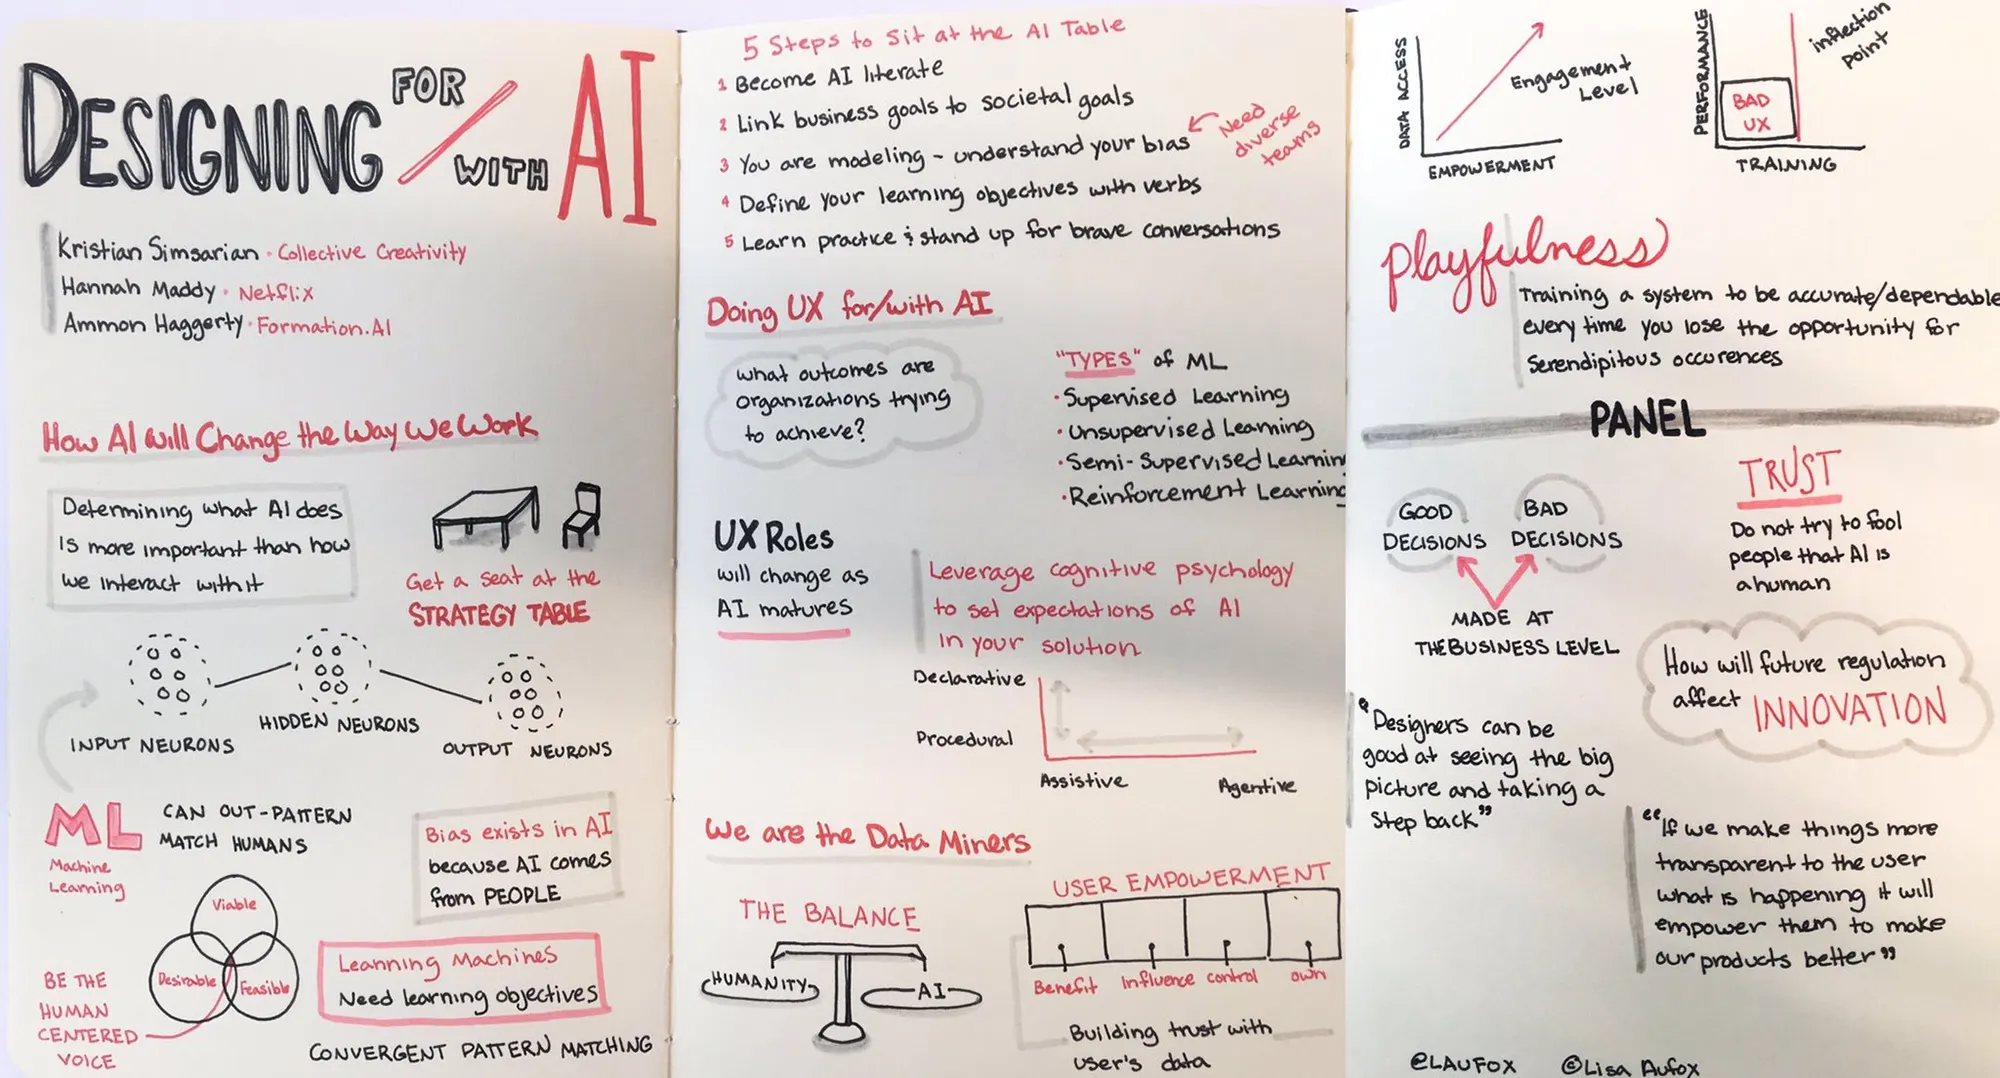 DESIGNING FOR / WITH AI
Kristian Simsarian · Collective Creativity
Hannah Maddy · Netflix
Ammon Haggerty · Formation.AI
How AI will Change the Way We Work
Determining what AI does
is more important than how
we interact with it
Get a seat at the
STRATEGY TABLE
INPUT NEURONS
HIDDEN NEURONS
OUTPUT NEURONS
ML
Machine
Learning
CAN OUT-PATTERN
MATCH HUMANS
Bias exists in AI
because AI comes
from PEOPLE
Viable
Desirable
Feasible
BE THE
HUMAN
CENTERED
VOICE
Learning Machines
Need learning objectives
CONVERGENT PATTERN MATCHING
5 Steps to Sit at the AI Table
1 Become AI literate
2 Link business goals to societal goals
3 You are modeling - understand your bias
Need
diverse
teams
4 Define your learning objectives with verbs
5 Learn practice & stand up for brave conversations
Doing UX for/with AI
what outcomes are
organizations trying
to achieve?
"TYPES" of ML
· Supervised Learning
· Unsupervised Learning
· Semi-Supervised Learning
· Reinforcement Learning
UX Roles
will change as
AI matures
Leverage cognitive psychology
to set expectations of AI
in your solution
Declarative
Procedural
Assistive
Agentive
We are the Data Miners
THE BALANCE
HUMANITY
AI
USER EMPOWERMENT
Benefit
Influence
control
own
Building trust with
user's data
DATA ACCESS
Engagement
Level
EMPOWERMENT
PERFORMANCE
BAD
UX
inflection
point
TRAINING
Playfulness
Training a system to be accurate/dependable
every time you lose the opportunity for
serendipitous occurences
PANEL
GOOD
DECISIONS
BAD
DECISIONS
MADE AT
THE BUSINESS LEVEL
TRUST
Do not try to fool
people that AI is
a human
How will future regulation
affect INNOVATION
"Designers can be
good at seeing the big
picture and taking a
step back"
"If we make things more
transparent to the user
what is happening it will
empower them to make
our products better"
@LAUFOX
©Lisa Aufox